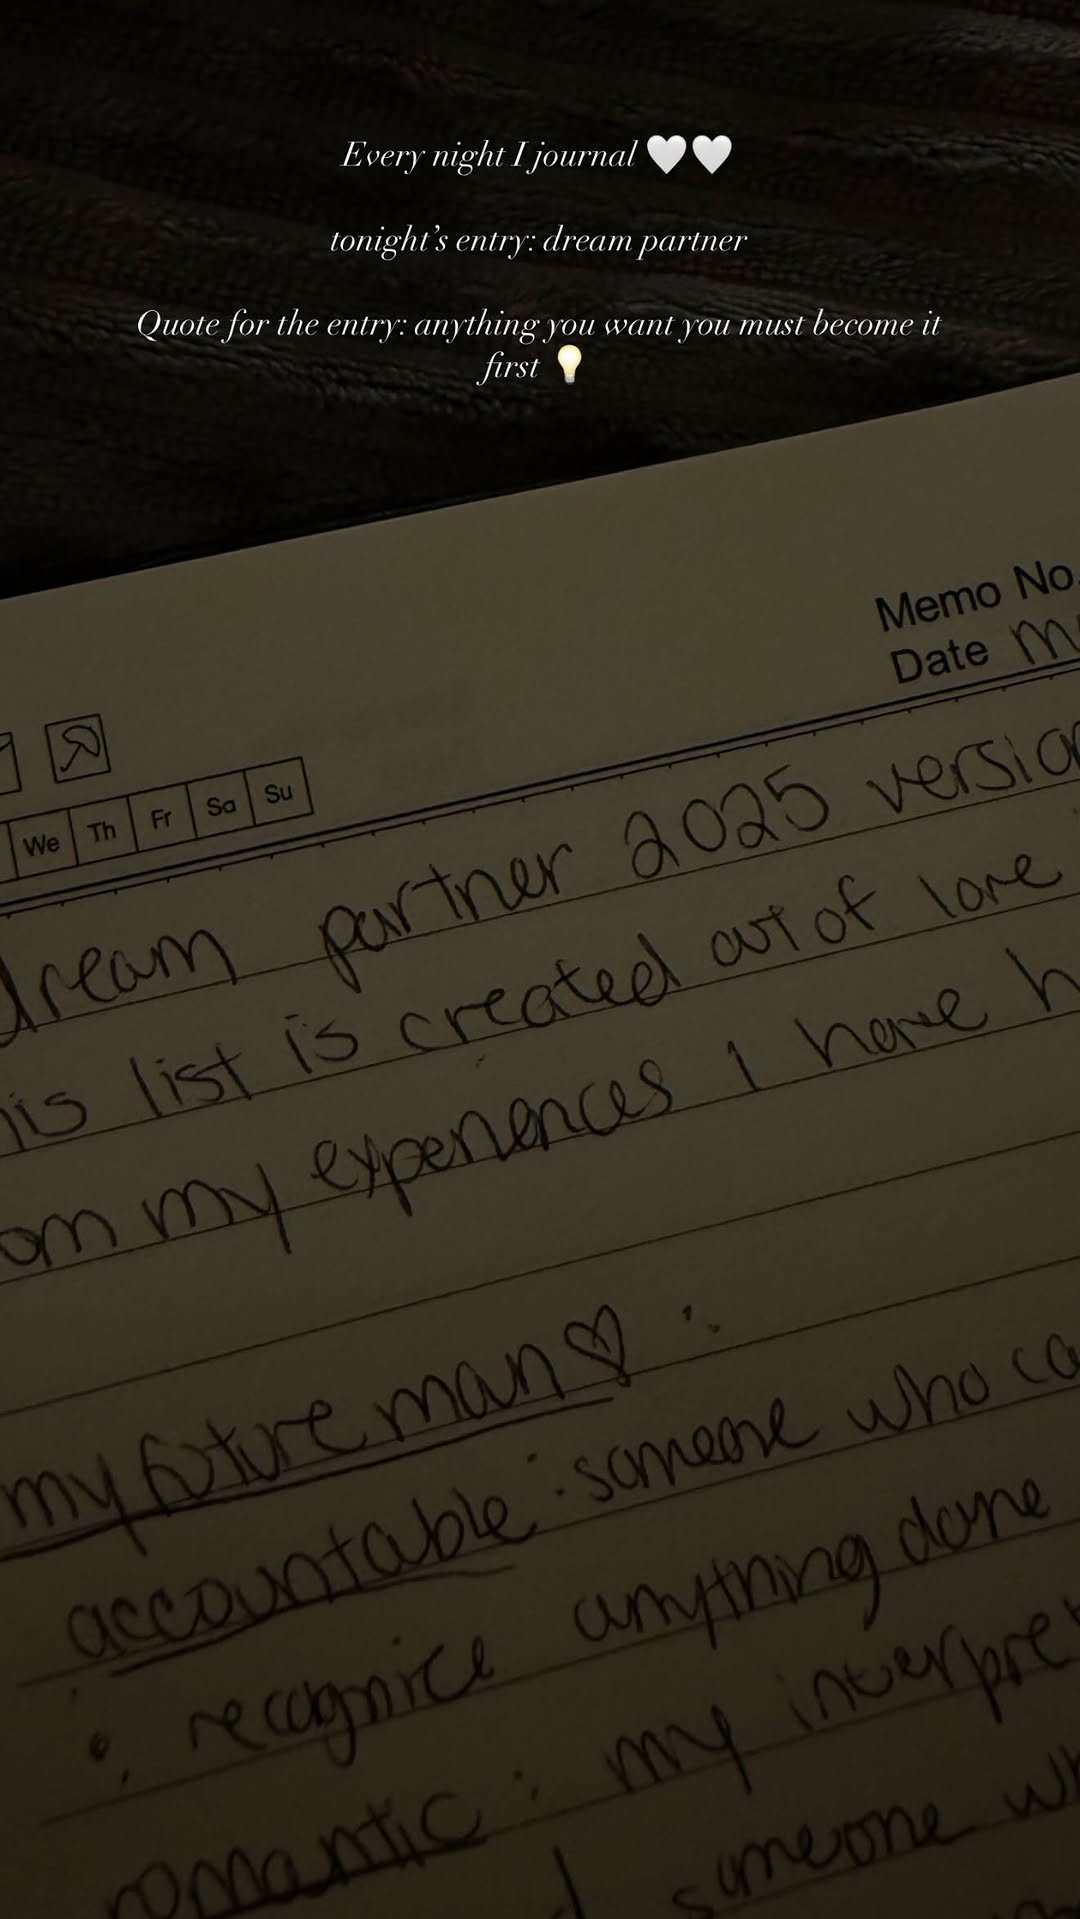 Every night I journal 🤍🤍
tonight’s entry: dream partner
Quote for the entry: anything you want you must become it
first 💡
Memo No.
Date
We Th Fr Sa Su
dream partner 2025 version
this list is created out of love
my experiences I have
my future man♡:
accountable: someone who
recognize anything done
romantic: my
someone